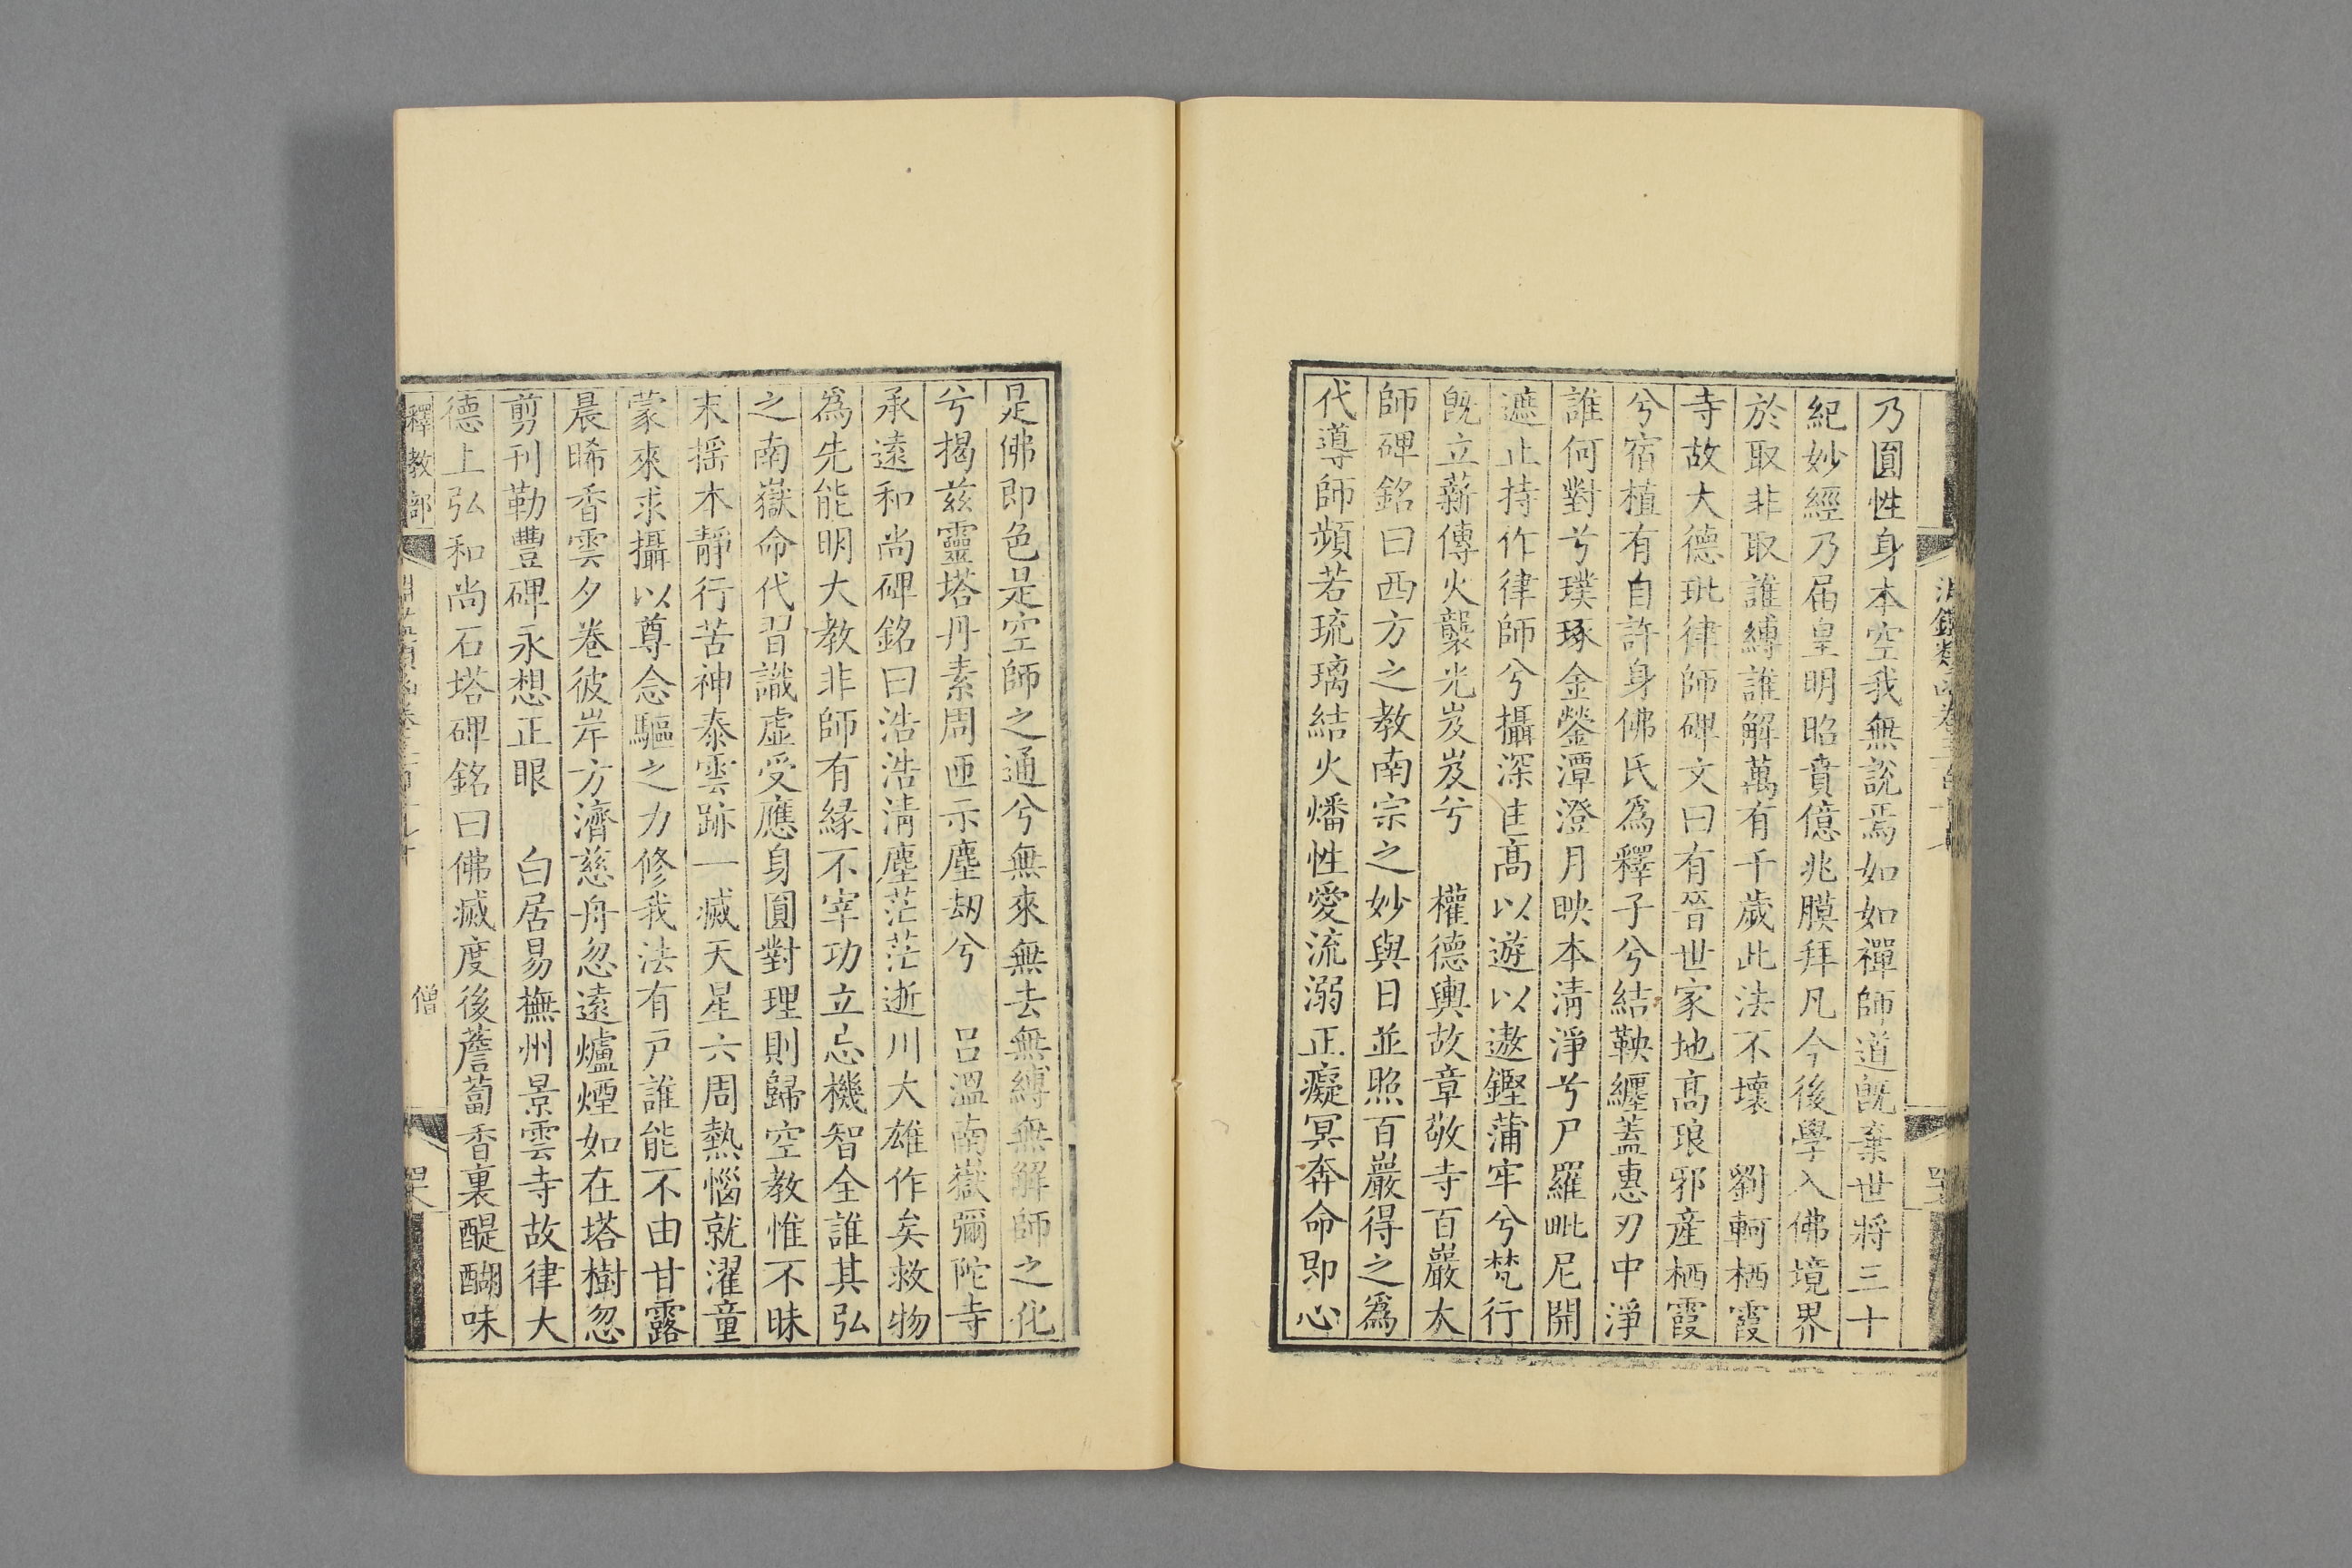 乃圓性身本空我無說焉如如禪師道旣棄世將三十
紀妙經乃屆皇明昭賁億兆膜拜凡今後學入佛境界
於取非取誰縛誰解萬有千歲此法不壞　劉軻栖霞
寺故大德玭律師碑文曰有晉世家地高琅邪產栖霞
兮宿植有自許身佛氏爲釋子兮結鞅纏蓋惠刃中淨
誰何對兮璞琢金鎣潭澄月映本清淨兮尸羅毗尼開
遮止持作律師兮攝深匡高以遊以遨鏗蒲牢兮梵行
旣立薪傳火襲光岌岌兮　權德輿故章敬寺百巖大
師碑銘曰西方之教南宗之妙與日並照百巖得之爲
代導師顯若琉璃結火燔性愛流溺正癡冥奔命即心
是佛即色是空師之通兮無來無去無縛無解師之化
兮揭茲靈塔丹素周匝示塵劫兮　呂溫南嶽彌陀寺
承遠和尚碑銘曰浩浩清塵茫茫逝川大雄作矣救物
爲先能明大教非師有緣不宰功立忘機智全誰其弘
之南嶽命代習識虛受應身圓對理則歸空教惟不昧
末搖本靜行苦神泰雲跡一滅天星六周熱惱就濯童
蒙來求攝以尊念驅之力修我法有戶誰能不由甘露
晨晞香雲夕卷彼岸方濟慈舟忽遠爐煙如在塔樹忽
剪刊勒豐碑永想正眼　白居易撫州景雲寺故律大
德上弘和尚石塔碑銘曰佛滅度後薝蔔香裏醍醐味
釋教部　僧